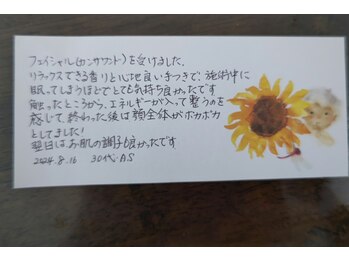 フェイシャル(カンサワンド)を受けました。
リラックスできる香りと心地良い手つきで、施術中に
眠ってしまうほどでとても気持ち良かったです
触ったところから、エネルギーが入って整うのを
感じて、終わった後は顔全体がポカポカ
としてました!
翌日は、お肌の調子も良かったです
2024.8.16 30代・A.S